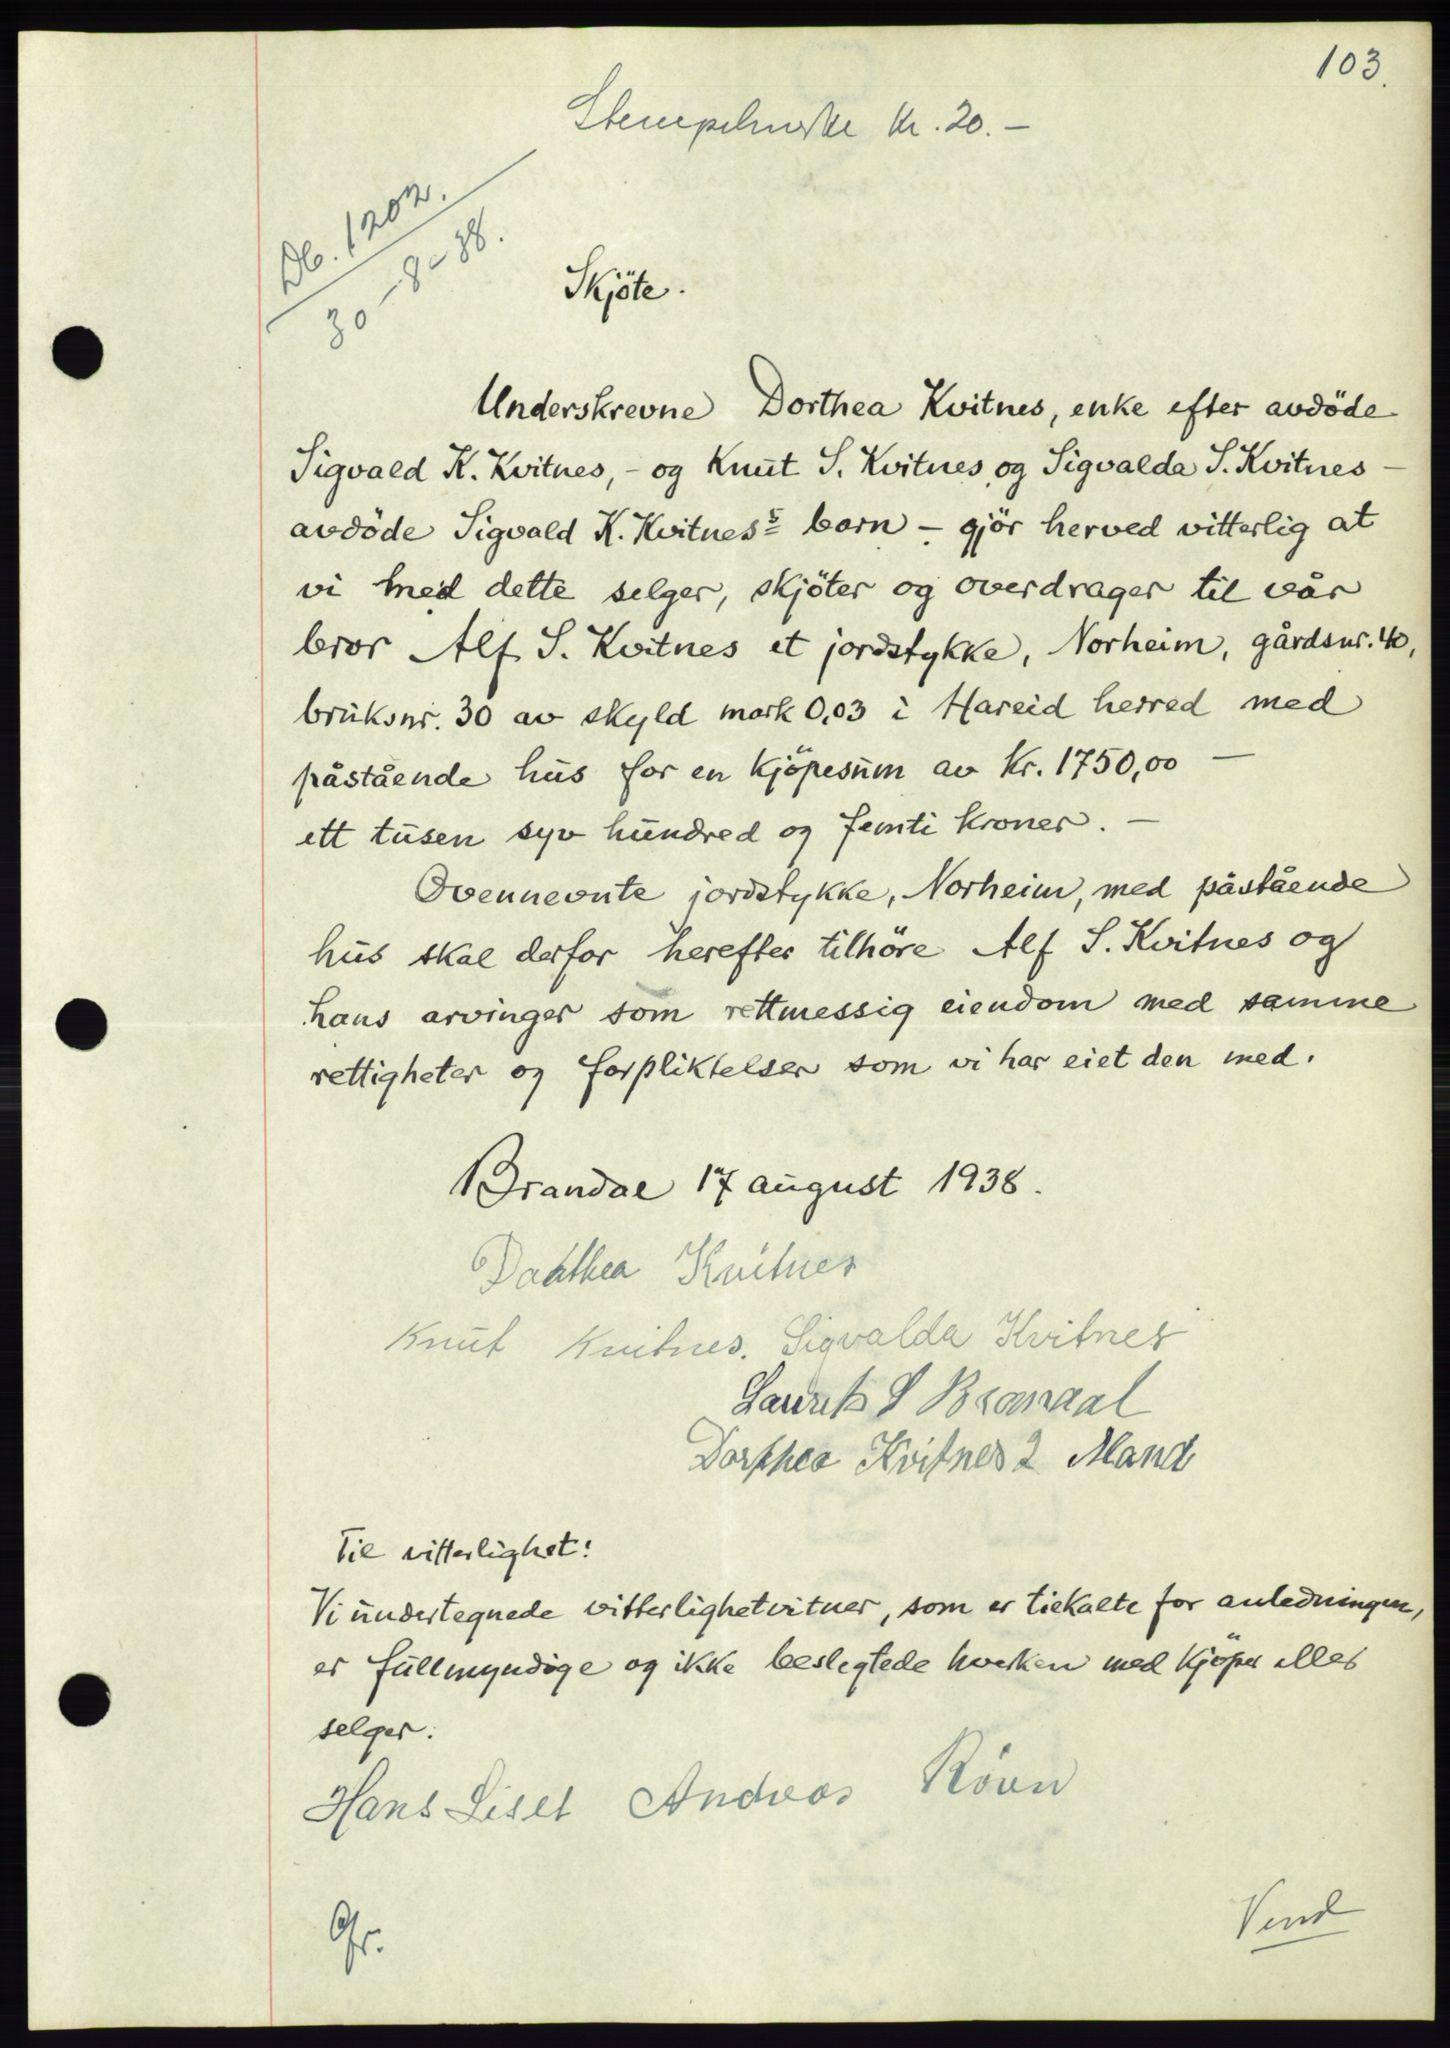 103.
Stempelmerke kr. 20.-
Db. 1202.
30-8-38.
Skjöte.
Underskrevne Dorthea Kvitnes, enke efter avdöde
Sigvald K. Kvitnes, - og Knut S. Kvitnes og Sigvalda S. Kvitnes -
avdöde Sigvald K. Kvitnes's barn - gjör herved vitterlig at
vi med dette selger, skjöter og overdrager til vår
bror Alf S. Kvitnes et jordstykke, Norheim, gårdsnr. 40,
bruksnr. 30 av skyld mark 0,03 i Hareid herred med
påstående hus for en kjöpesum av kr. 1750,00 -
ett tusen syv hundred og femti kroner. -
Ovennevnte jordstykke, Norheim, med påstående
hus skal derfor herefter tilhöre Alf S. Kvitnes og
hans arvinger som rettmessig eiendom med samme
rettigheter og forpliktelser som vi har eiet den med.
Brandal 17 august 1938.
Dorthea Kvitnes
Knut Kvitnes. Sigvalda Kvitnes
Laurits S Brandal
Dorthea Kvitnes 2 Mand
Til vitterlighet:
Vi undertegnede vitterlighetvitner, som er tilkalte for anledningen,
er fullmyndige og ikke beslegtede hverken med kjöper eller
selger.
Hans Liset Andreas Röven
Gr.
Vend